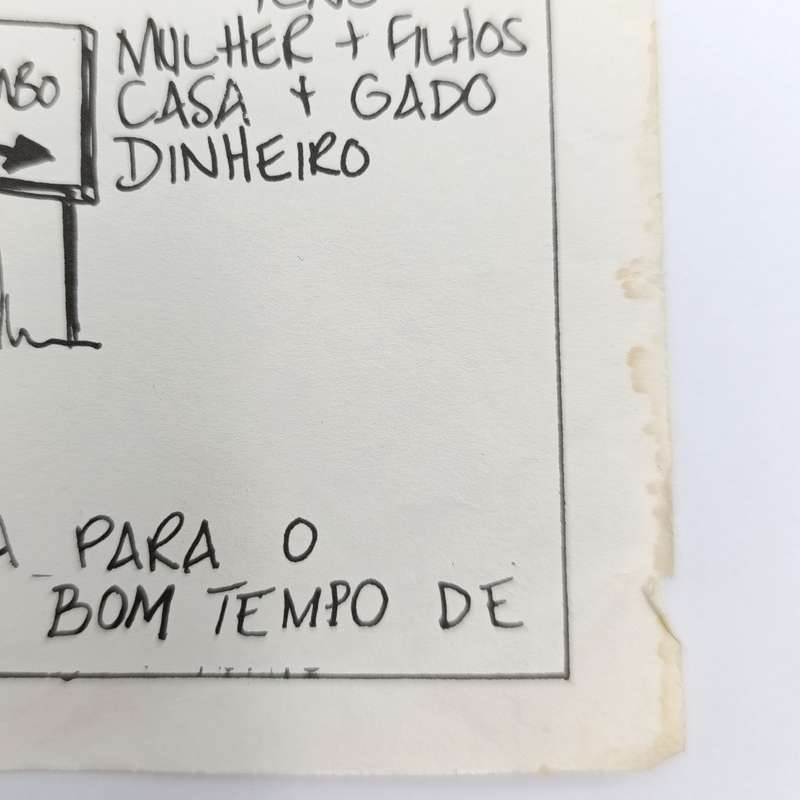 MULHER + FILHOS
CASA + GADO
DINHEIRO
PARA O
BOM TEMPO DE